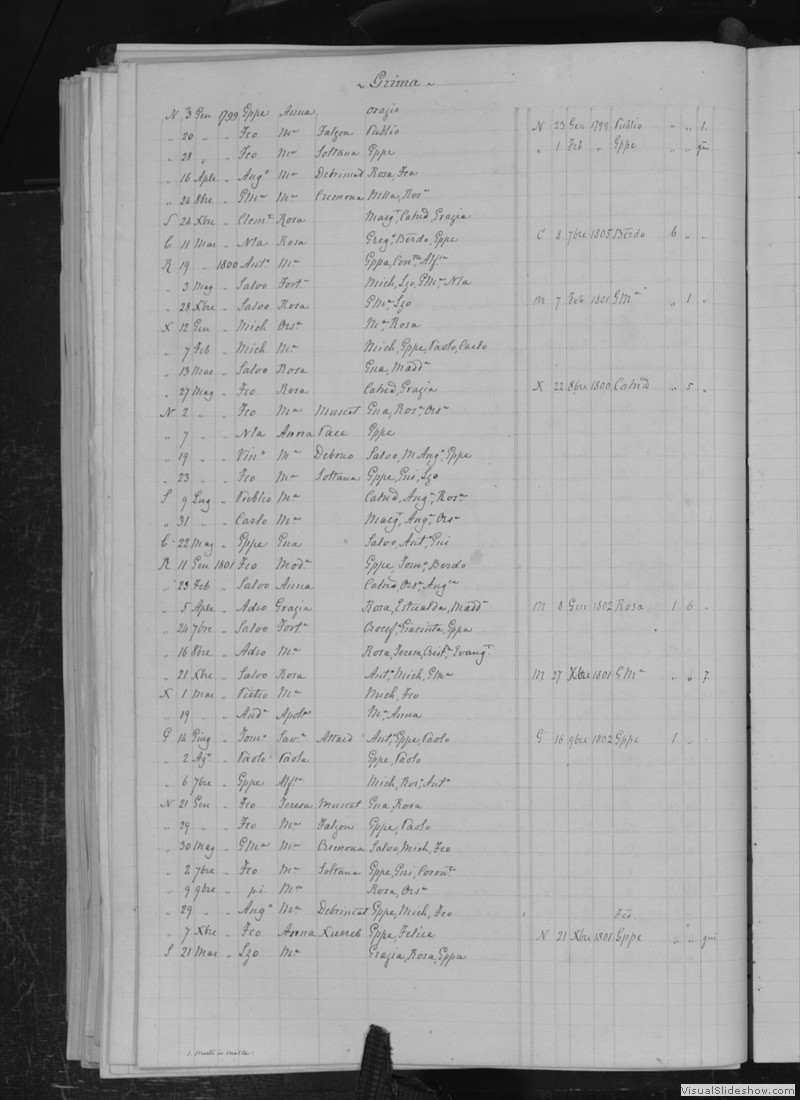 ~ Grima ~
N 3 Gen 1799 Gppe Anna Orazio
„ 20 „ „ Fco Mª Falzon Publio N 23 Gen 1799 Publio „ „ 1.
„ 28 „ „ Fco Mª Soltana Gppe „ 1 Feb „ Gppe „ „ gni
„ 16 Aple „ Angº Mª Debrincat Rosa, Fca
„ 24 8bre „ GMª Mª Cremona Nella, Rosª
S 24 Xbre „ Clemte Rosa Margª, Catnd, Grazia
C 11 Mar „ Nla Rosa Gregº, Berdo, Gppe C 8 7bre 1805 Berdo 6 „ „
R 19 „ 1800 Antº Mª Gppa, Alfsa
„ 3 Mag „ Salvo Fortª Mich, Lzo, GMª, Nla
„ 28 Xbre „ Salvo Rosa GMª, Lzo M 7 Feb 1801 GMª „ 1 „
X 12 Gen „ Mich Orsª Mª, Rosa
„ 7 Feb „ Mich Mª Mich, Gppe, Paolo, Carlo
„ 13 Mar „ Salvo Rosa Gna, Maddª
„ 27 Mag „ Fco Rosa Catnd, Grazia X 22 8bre 1800 Catnd „ 5 „
N 2 „ „ Fco Mª Muscat Gna, Rosª, Orsª
„ 7 „ „ Nla Anna Pace Gppe
„ 19 „ „ Vinº Mª Debono Salvo, M Angº, Gppe
„ 23 „ „ Fco Mª Soltana Gppe, Gni, Lzo
S 9 Lug „ Publio Mª Catnd, Angª, Rosª
„ 31 „ „ Carlo Mª Margª, Angª, Orsª
C 22 Mag „ Gppe Gna Salvo, Antº, Gni
R 11 Gen 1801 Fco Modª Gppe, Tomº, Berdo
„ 23 Feb „ Salvo Anna Catnd, Orsª, Angca
„ 5 Aple „ Adeo Grazia Rosa, Estualda, Maddª M 8 Gen 1802 Rosa 1 6 „
„ 24 7bre „ Salvo Fortª Crocefª, Giacinta, Gppa
„ 16 8bre „ Adeo Mª Rosa, Teresa, Cristª, Evangª
„ 21 Xbre „ Salvo Rosa Antº, Mich, GMª M 27 Xbre 1801 GMª „ „ 7
X 1 Mar „ Pietro Mª Mich, Fco
„ 19 „ Andª Apolª Mª, Anna
G 14 Ging „ Tomº Savª Attard Antº, Gppe, Paolo G 16 9bre 1802 Gppe 1 „
„ 2 Agº „ Paolo Paola Gppe, Paolo
„ 6 7bre „ Gppe Alfsa Mich, Rosº, Antº
N 21 Gen „ Fco Teresa Muscat Gna, Rosa
„ 29 „ „ Fco Mª Falzon Gppe, Paolo
„ 30 Mag „ GMª Mª Cremona Salvo, Mich, Fco
„ 2 7bre „ Fco Mª Soltana Gppe, Gni, Coronª
„ 9 9bre „ pi Mª Rosa, Orsª
„ 29 „ „ Angº Mª Debrincat Gppe, Mich, Fco
Fco
„ 7 Xbre „ Fco Anna Xuereb Gppe, Felice N 21 Xbre 1801 Gppe „ „ gni
S 21 Mar „ Lzo Mª Grazia, Rosa, Gppa
1. Morti in Malta.
VisualSlideshow.com